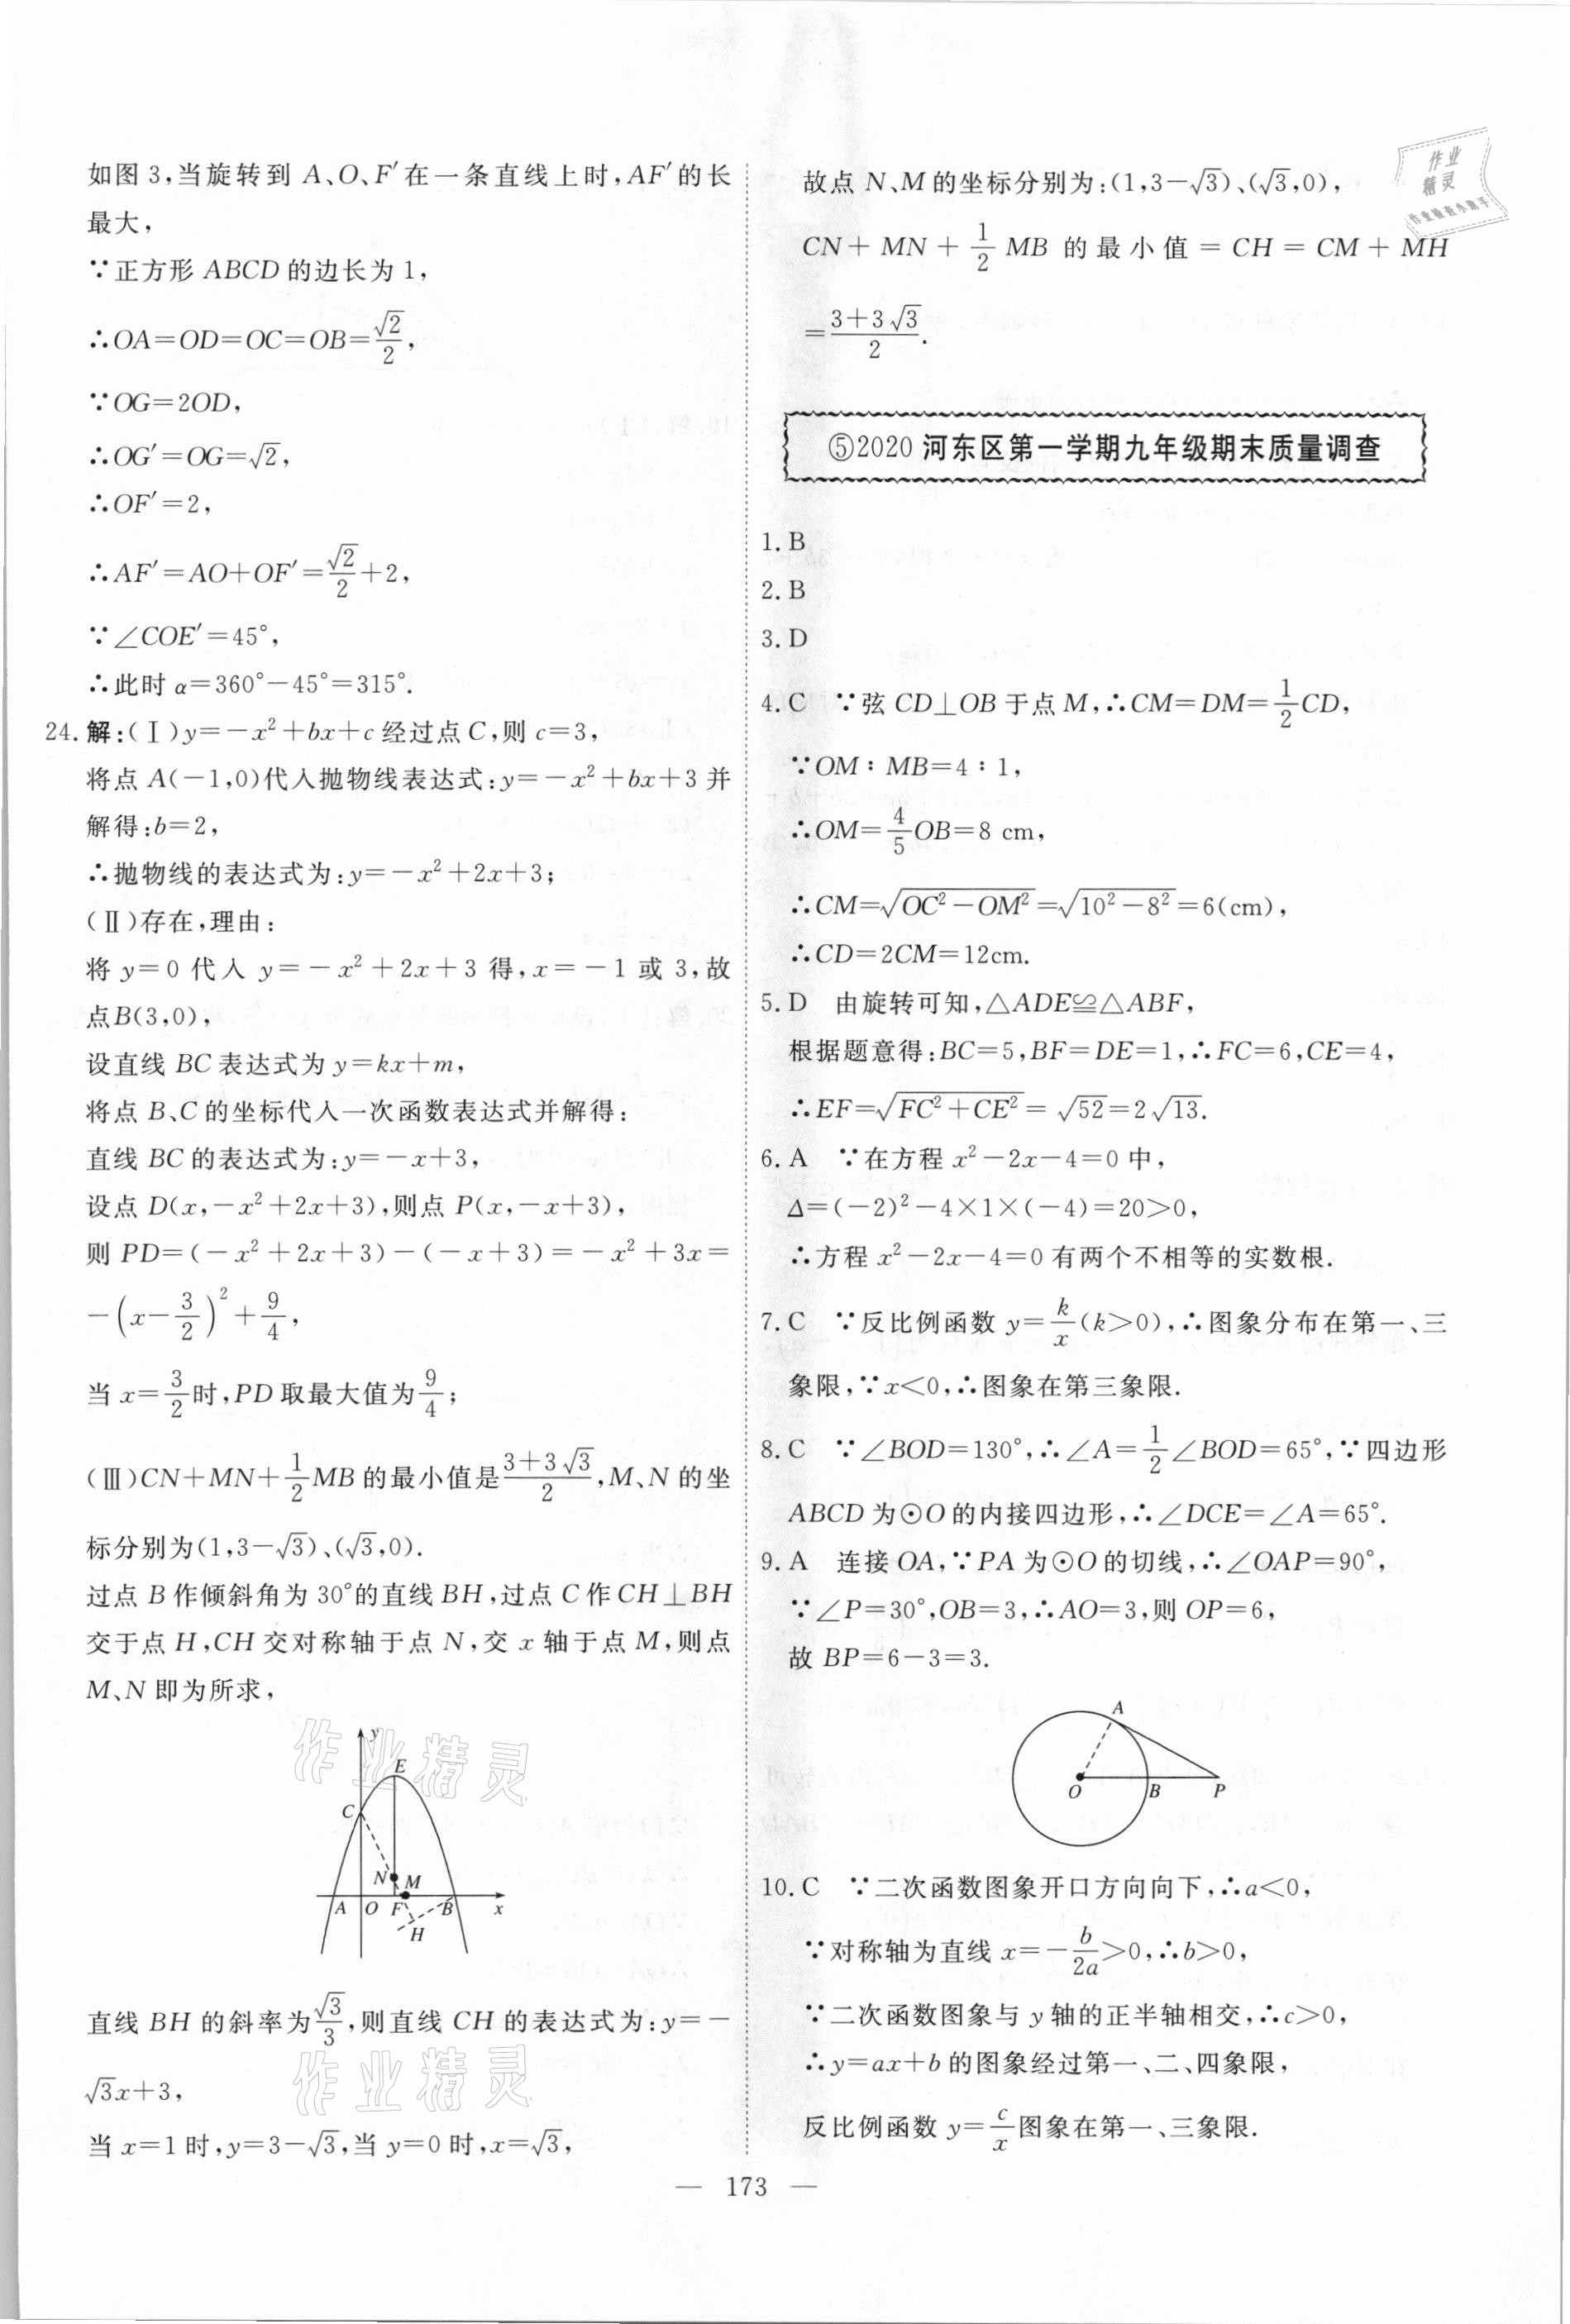 如图 3,当旋转到 A、O、F′在一条直线上时,AF′的长
最大,
∵正方形 ABCD 的边长为 1,
∴OA=OD=OC=OB=√2/2,
∵OG=2OD,
∴OG′=OG=√2,
∴OF′=2,
∴AF′=AO+OF′=√2/2+2,
∵∠COE′=45°,
∴此时 α=360°-45°=315°.
24. 解:(Ⅰ)y=-x²+bx+c 经过点 C,则 c=3,
将点 A(-1,0)代入抛物线表达式:y=-x²+bx+3 并
解得:b=2,
∴抛物线的表达式为:y=-x²+2x+3;
(Ⅱ)存在,理由:
将 y=0 代入 y=-x²+2x+3 得,x=-1 或 3,故
点B(3,0),
设直线 BC 表达式为 y=kx+m,
将点 B、C 的坐标代入一次函数表达式并解得:
直线 BC 的表达式为:y=-x+3,
设点 D(x,-x²+2x+3),则点 P(x,-x+3),
则 PD=(-x²+2x+3)-(-x+3)=-x²+3x=
-(x-3/2)²+9/4,
当 x=3/2时,PD 取最大值为9/4;
(Ⅲ)CN+MN+1/2MB 的最小值是(3+3√3)/2,M、N 的坐
标分别为(1,3-√3)、(√3,0).
过点 B 作倾斜角为 30°的直线 BH,过点 C 作 CH⊥BH
交于点 H,CH 交对称轴于点 N,交 x 轴于点 M,则点
M、N 即为所求,
y
E
C
N M
A O F B x
H
作业精灵
直线 BH 的斜率为√3/3,则直线 CH 的表达式为:y=-
√3x+3,
作业精灵
当 x=1 时,y=3-√3,当 y=0 时,x=√3,
故点 N、M 的坐标分别为:(1,3-√3)、(√3,0),
CN+MN+1/2 MB 的最小值=CH=CM+MH
=(3+3√3)/2.
作业
精灵
⑤2020 河东区第一学期九年级期末质量调查
1. B
2. B
3. D
4. C ∵弦 CD⊥OB 于点 M,∴CM=DM=1/2CD,
∵OM∶MB=4∶1,
∴OM=4/5OB=8 cm,
∴CM=√(OC²-OM²)=√(10²-8²)=6(cm),
∴CD=2CM=12cm.
5. D 由旋转可知,△ADE≌△ABF,
根据题意得:BC=5,BF=DE=1,∴FC=6,CE=4,
∴EF=√(FC²+CE²)=√52=2√13.
6. A ∵在方程 x²-2x-4=0 中,
Δ=(-2)²-4×1×(-4)=20>0,
∴方程 x²-2x-4=0 有两个不相等的实数根.
7. C ∵反比例函数 y=k/x(k>0),∴图象分布在第一、三
象限,∵x<0,∴图象在第三象限.
8. C ∵∠BOD=130°,∴∠A=1/2∠BOD=65°,∵四边形
ABCD 为⊙O 的内接四边形,∴∠DCE=∠A=65°.
9. A 连接 OA,∵PA 为⊙O 的切线,∴∠OAP=90°,
∵∠P=30°,OB=3,∴AO=3,则 OP=6,
故 BP=6-3=3.
A
O B P
10. C ∵二次函数图象开口方向向下,∴a<0,
∵对称轴为直线 x=-b/2a>0,∴b>0,
∵二次函数图象与 y 轴的正半轴相交,∴c>0,
∴y=ax+b 的图象经过第一、二、四象限,
反比例函数 y=c/x图象在第一、三象限.
— 173 —